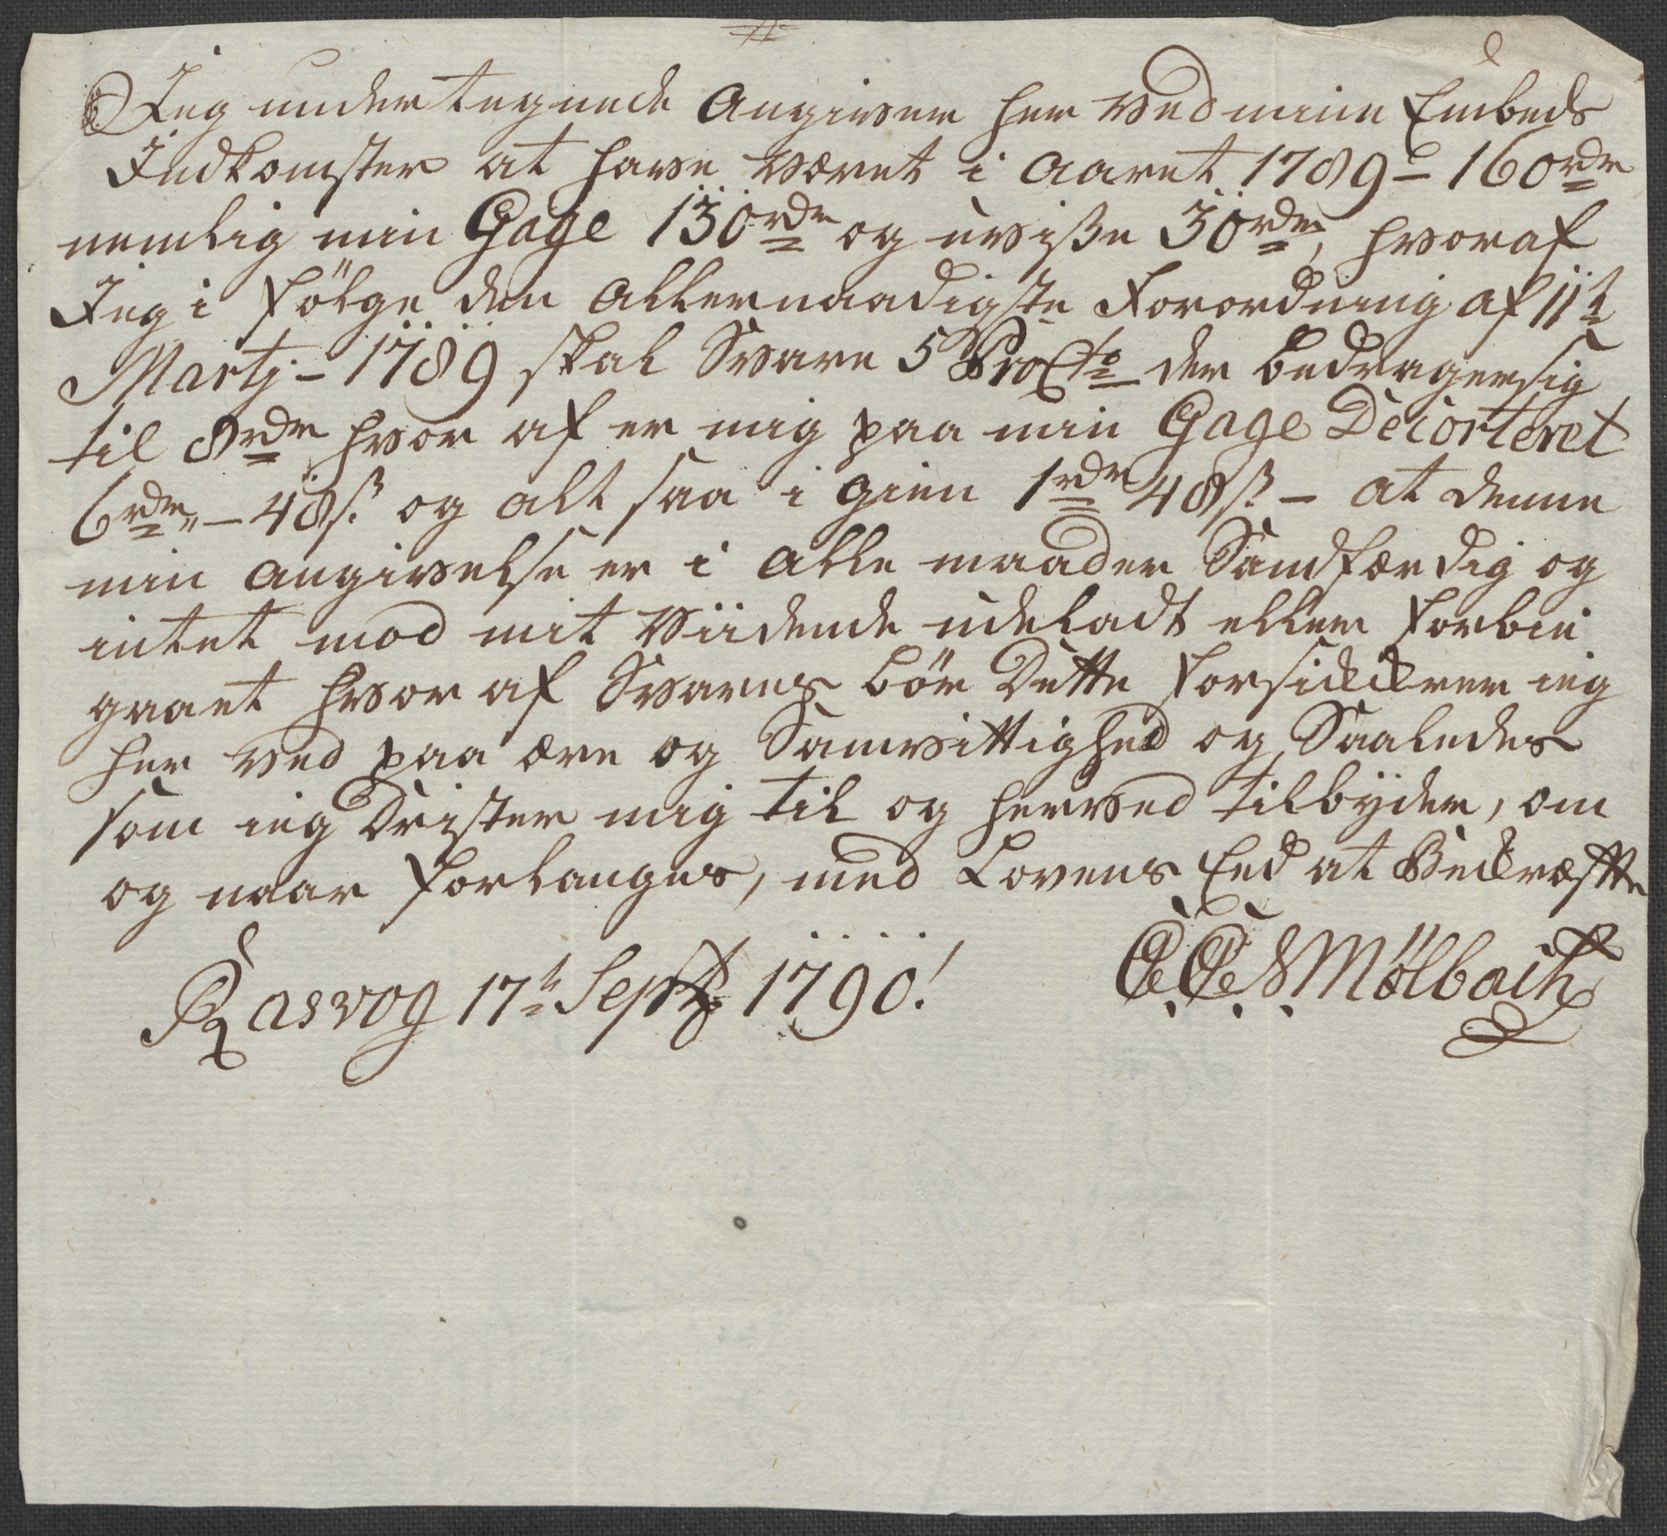 Jeg undertegnede Angiver her ved mine Embeds
Indkomster at have været i Aaret 1789 – 160 rdr
nemlig min Gage 130 rdr og uviße 30 rdr, hvoraf
Jeg i følge den Allernaadigste Forordning af 11t
Martj – 1789 skal Svare 5 ProCto der bedrager sig
til 8 rdr hvor af er mig paa min Gage Decorteret
6 rdr – 48 ß. og alt saa i gien 1 rdr 48 ß. – at denne
min angivelse er i alle maader Sandfærdig og
intet mod mit Viidende udeladt eller forbie
gaaet hvor af Svares bør Dette forsickkrer ieg
her ved paa ære og Samvittighed og Saaledes
som ieg Drister mig til og herved tilbyder, om
og naar forlanges, med Lovens Eed at Beckræfte
Rasvog 17t Septr 1790!
Mølbach